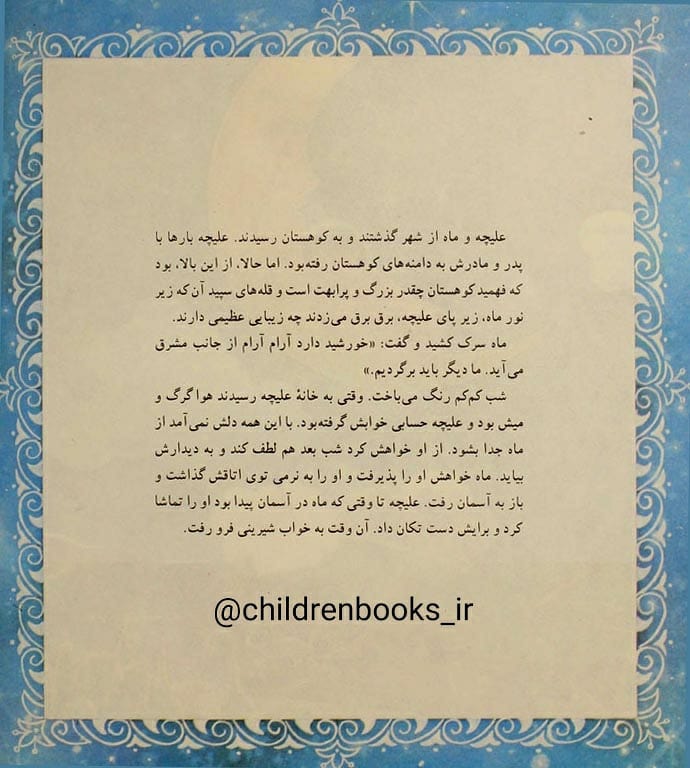 علیچه و ماه از شهر گذشتند و به کوهستان رسیدند. علیچه بارها با
پدر و مادرش به دامنه‌های کوهستان رفته‌بود. اما حالا، از این بالا، بود
که فهمید کوهستان چقدر بزرگ و پرابهت است و قله‌های سپید آن که زیر
نور ماه، زیر پای علیچه، برق برق می‌زدند چه زیبایی عظیمی دارند.
ماه سرک کشید و گفت: «خورشید دارد آرام آرام از جانب مشرق
می‌آید. ما دیگر باید برگردیم.»
شب کم‌کم رنگ می‌باخت. وقتی به خانهٔ علیچه رسیدند هوا گرگ و
میش بود و علیچه حسابی خوابش گرفته‌بود. با این همه دلش نمی‌آمد از
ماه جدا بشود. از او خواهش کرد شب بعد هم لطف کند و به دیدارش
بیاید. ماه خواهش او را پذیرفت و او را به نرمی توی اتاقش گذاشت و
باز به آسمان رفت. علیچه تا وقتی که ماه در آسمان پیدا بود او را تماشا
کرد و برایش دست تکان داد. آن وقت به خواب شیرینی فرو رفت.
@childrenbooks_ir